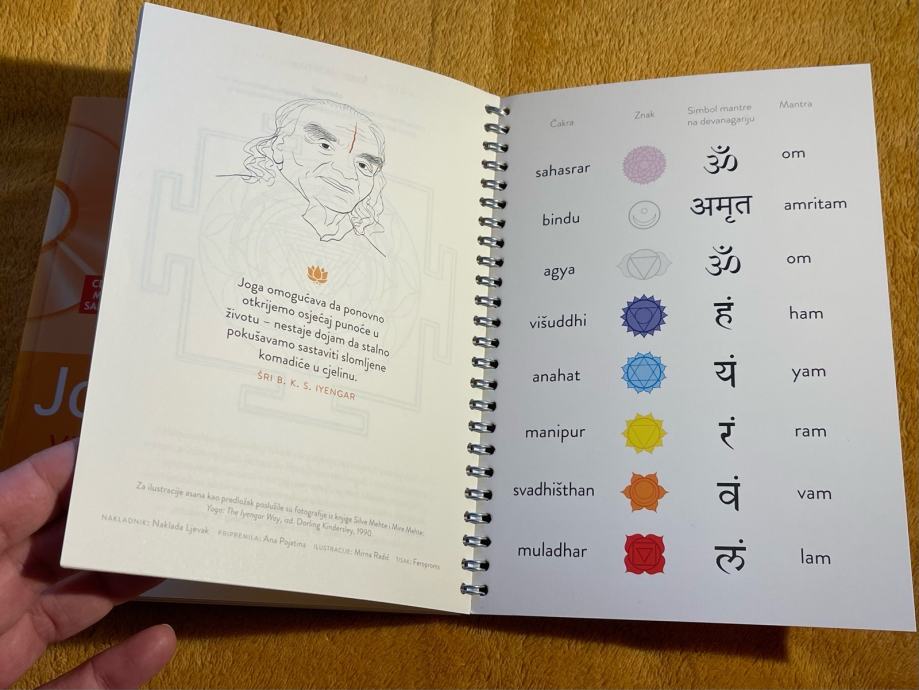 Joga omogućava da ponovno
otkrijemo osjećaj punoće u
životu – nestaje dojam da stalno
pokušavamo sastaviti slomljene
komadiće u cjelinu.
ŠRI B. K. S. IYENGAR
Za ilustracije asana kao predložak poslužile su fotografije iz knjiga Silve Mehte i Mire Mehte:
Yoga: The Iyengar Way, ed. Dorling Kindersley, 1990.
NAKLADNIK: Naklada Ljevak PRIPREMILA: Ana Pojatina ILUSTRACIJE: Mirna Radić TISAK: Feroproms
Čakra Znak Simbol mantre na devanagariju Mantra
sahasrar ॐ om
bindu अमृत amritam
agya ॐ om
višuddhi हं ham
anahat यं yam
manipur रं ram
svadhišthan वं vam
muladhar लं lam